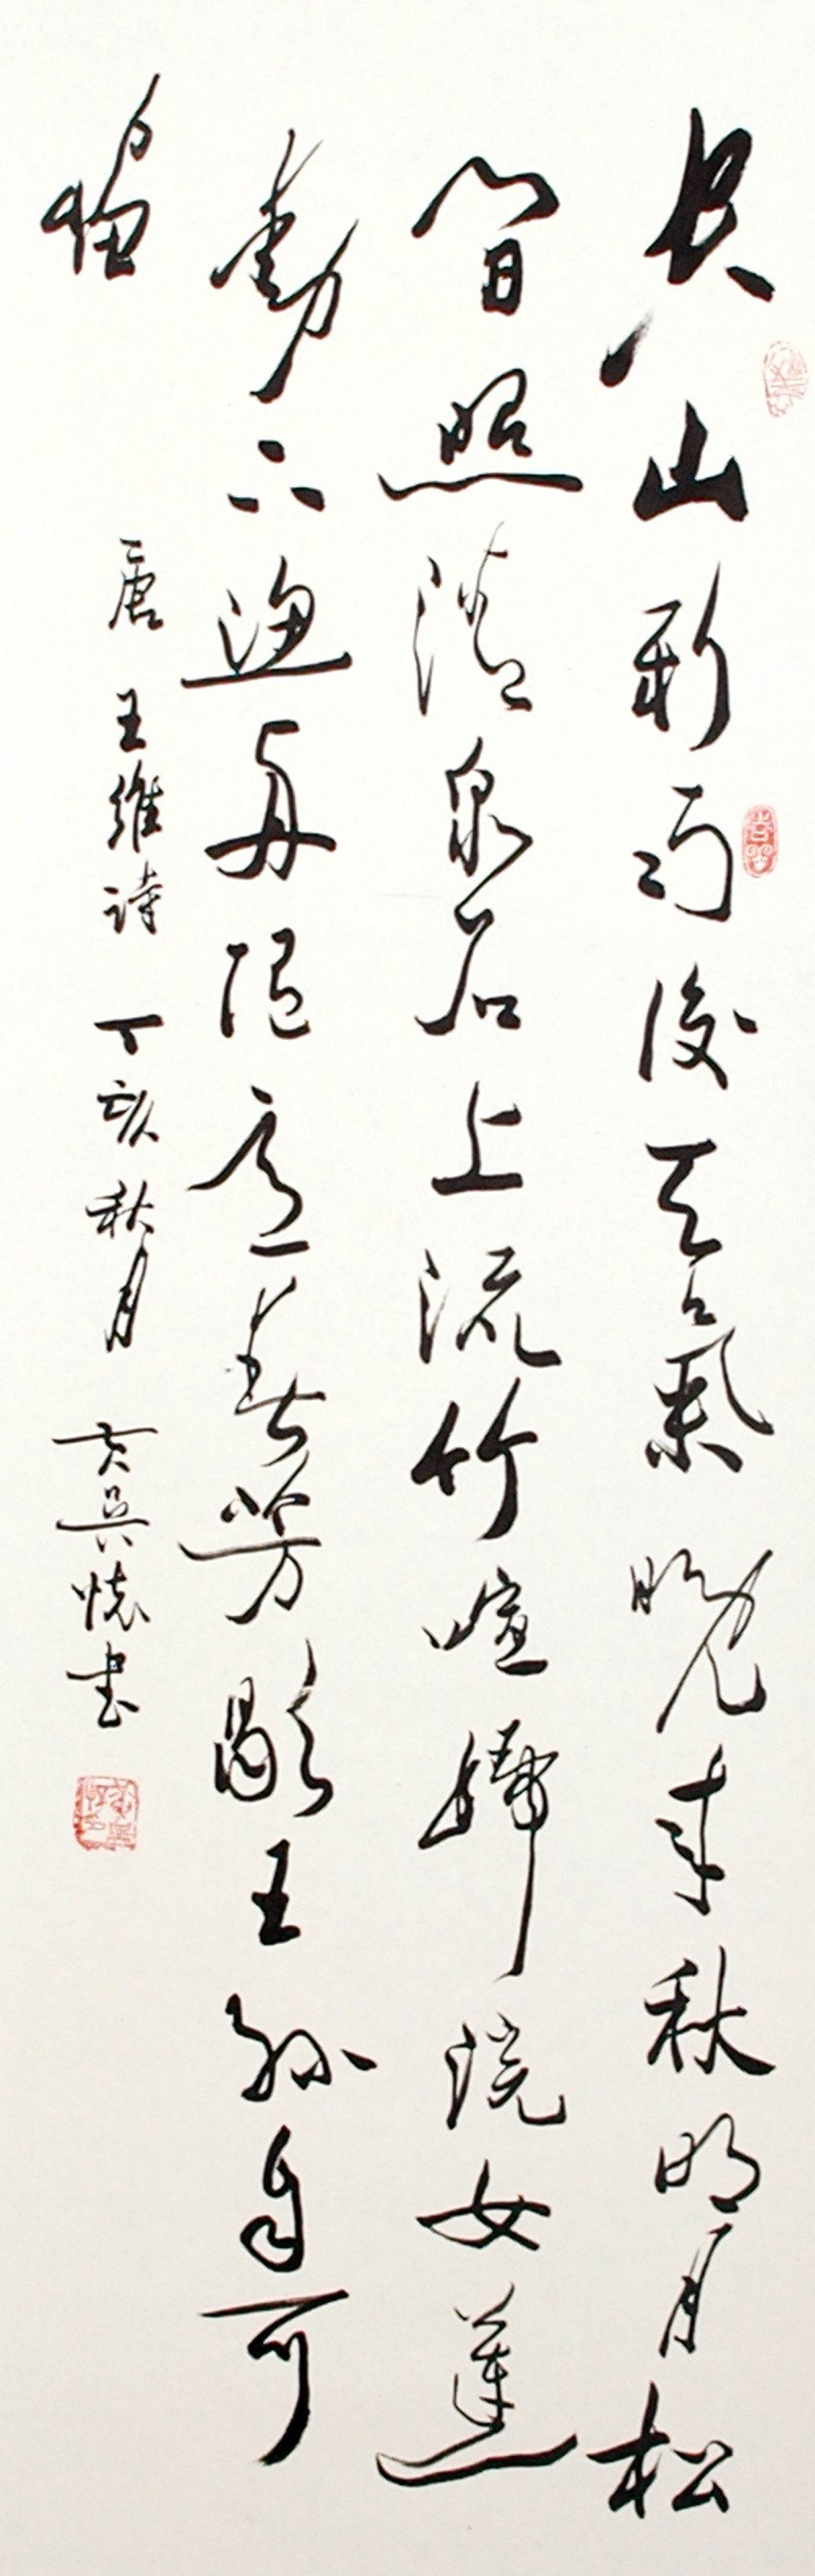 空山新雨後天氣晚来秋明月松
間照清泉石上流竹喧歸浣女蓮
動下漁舟隨意春芳歇王孫自可
留
唐 王維诗 丁亥秋月 書